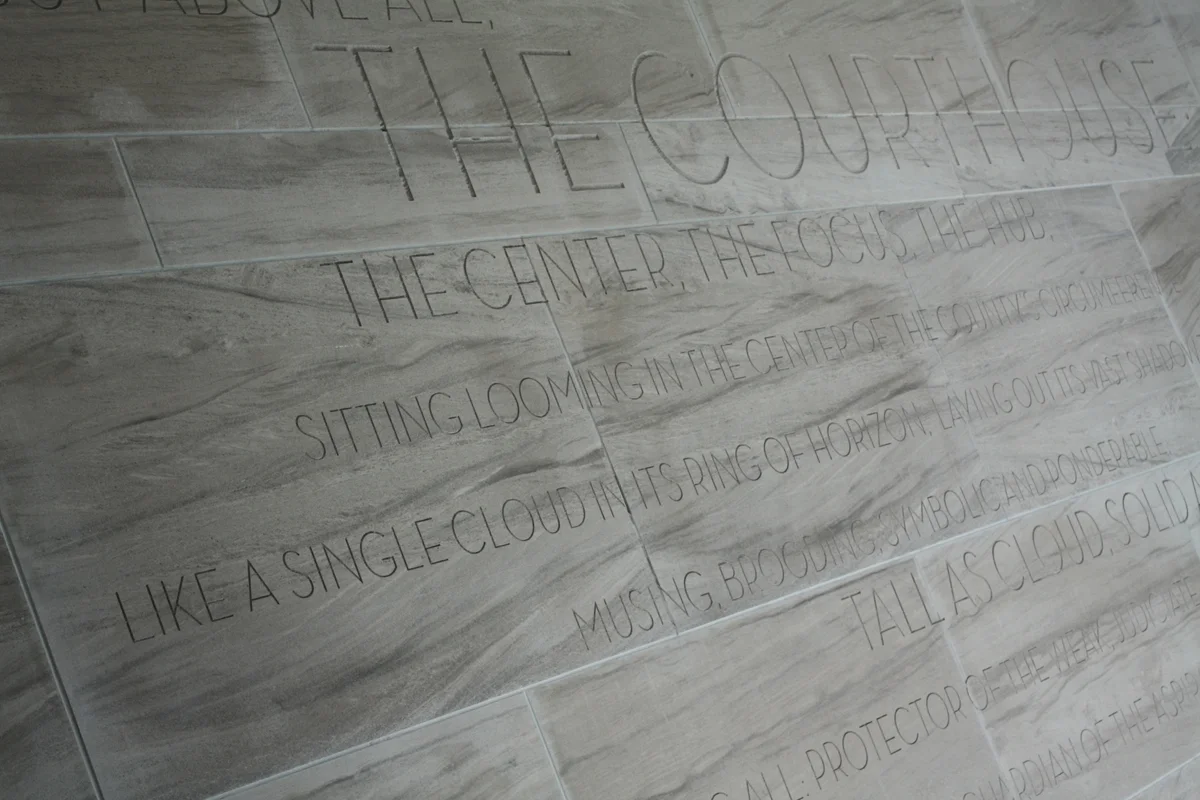 ABOVE ALL,
THE COURTHOUSE:
THE CENTER, THE FOCUS, THE HUB;
SITTING LOOMING IN THE CENTER OF THE COUNTY'S CIRCUMFERE
LIKE A SINGLE CLOUD IN ITS RING OF HORIZON, LAYING OUT ITS VAST SHADO
MUSING, BROODING, SYMBOLIC AND PONDERABLE
TALL AS CLOUD, SOLID
ALL: PROTECTOR OF THE WEAK, JUDICIATE
GUARDIAN OF THE ASPI